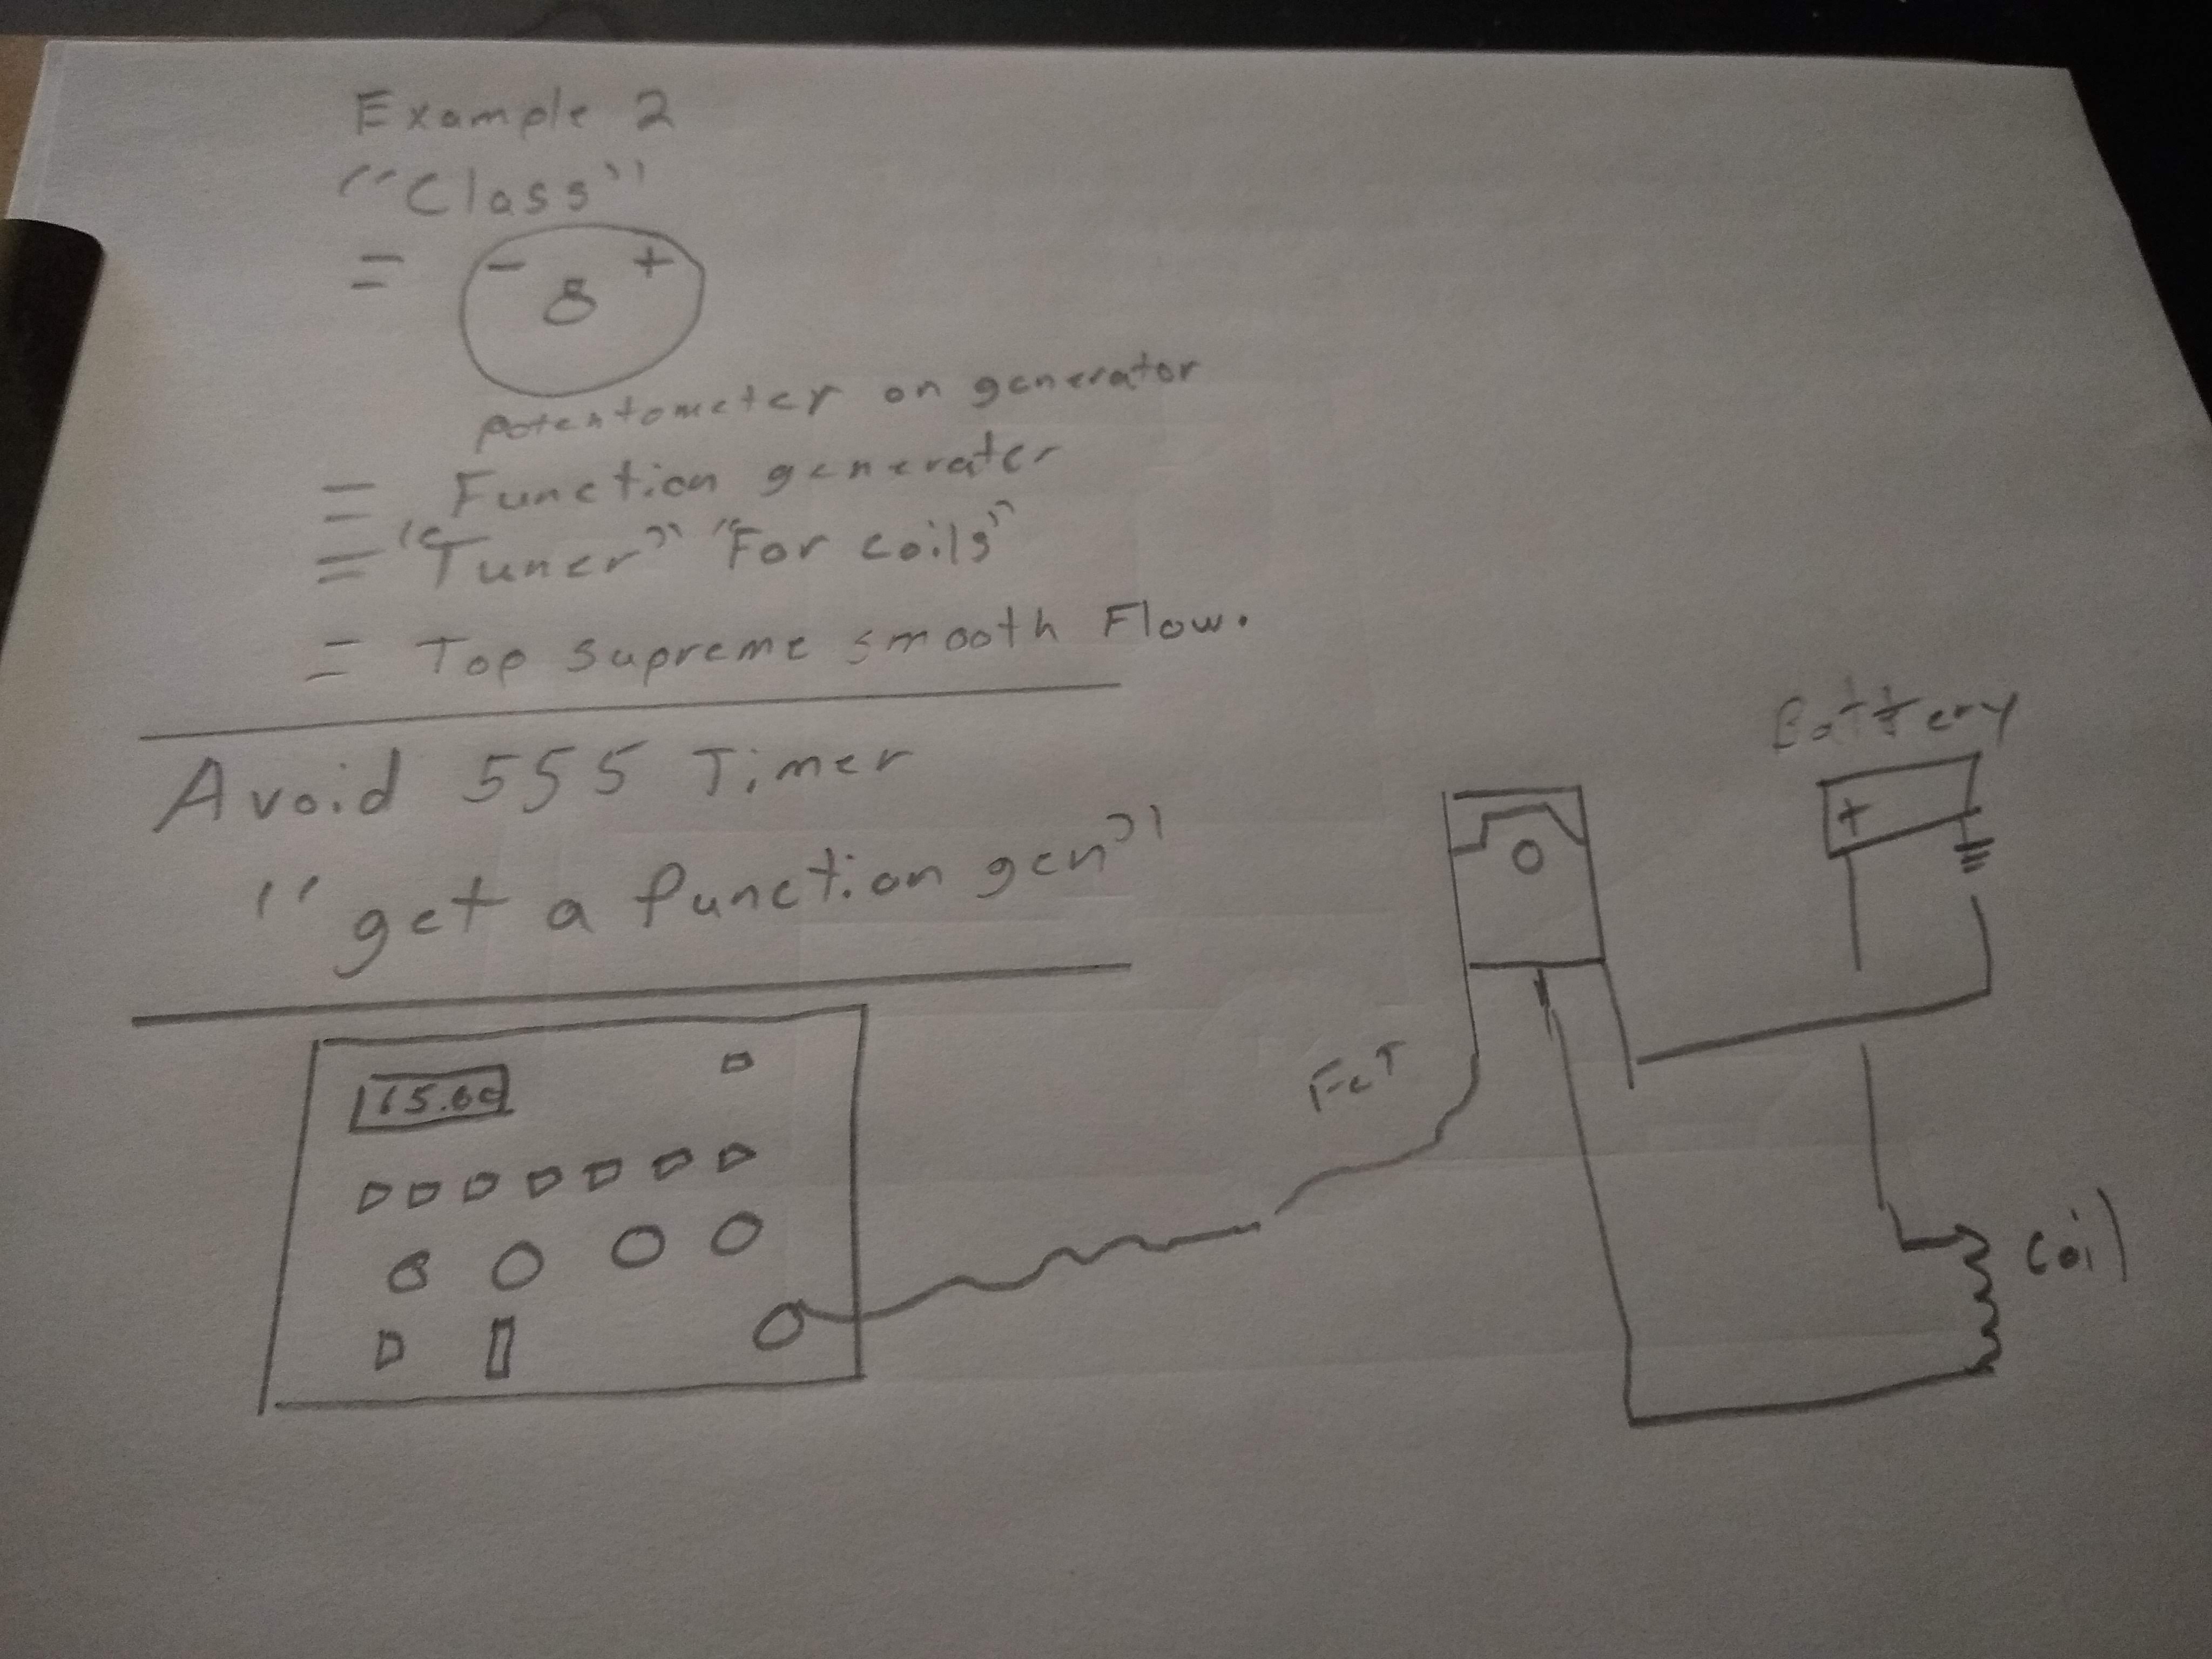 Example 2
"Class"
= - 8 +
potentometer on generator
= Function generater
= "Tuner" "For coils"
= Top supreme smooth Flow.
Avoid 555 Timer
"get a function gen"
Battery
+
FeT
Coil